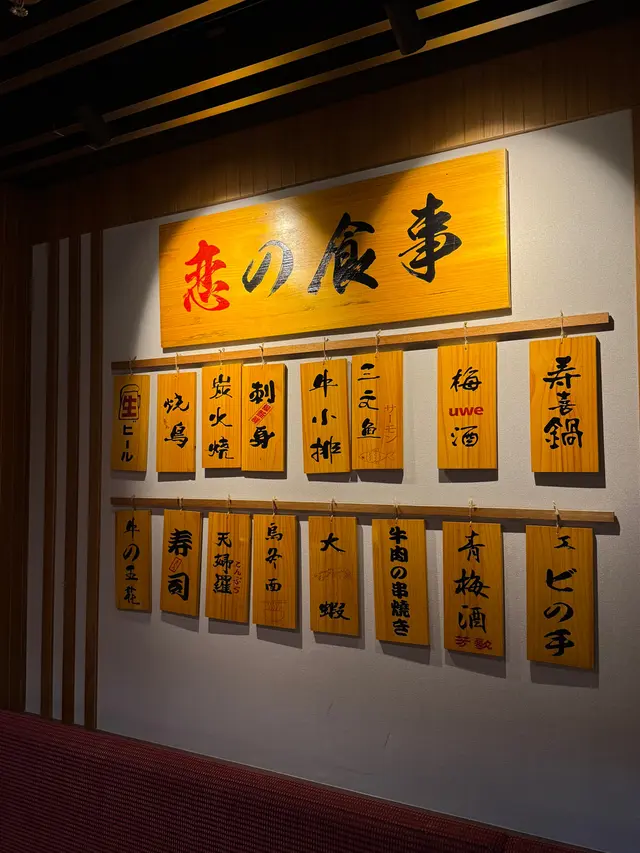 恋の食事
生
ビール
烧鳥
炭火焼
刺身
牛小排
三文鱼
サーモン
梅
uwe
酒
寿喜鍋
牛の五花
寿司
天婦羅
てんぷら
烏冬面
大
蝦
牛肉の串焼き
青梅酒
エビの手